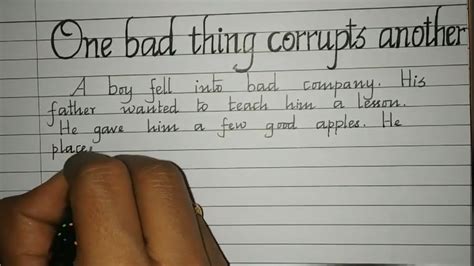 One bad thing corrupts another
A boy fell into bad company. His
father wanted to teach him a lesson.
He gave him a few good apples. He
place